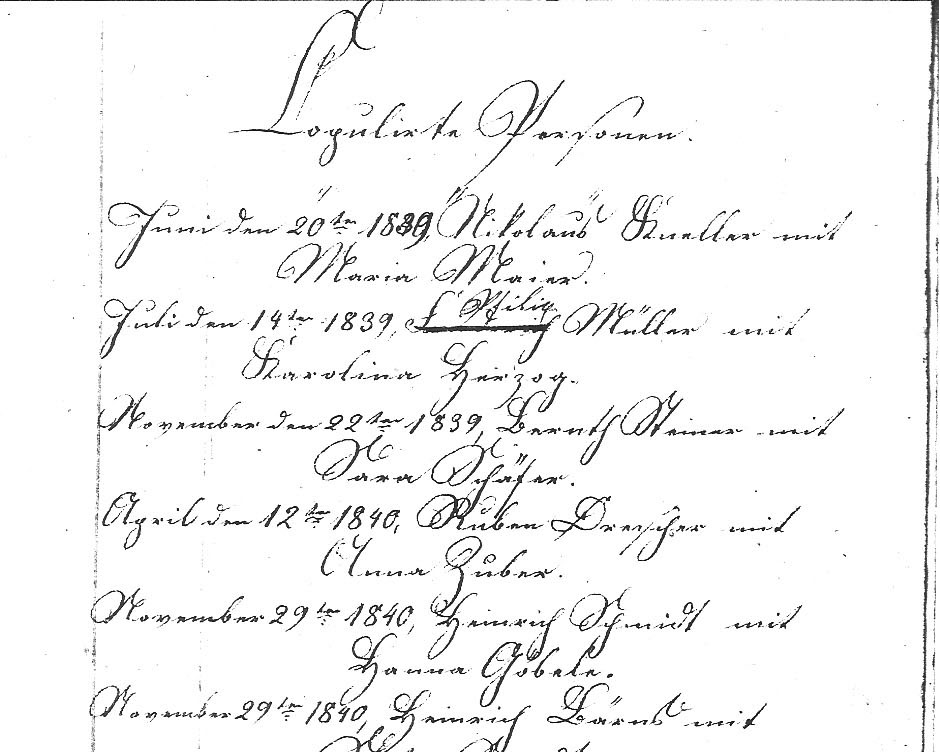 Copulirte Personen.
Juni den 20ten 1839, Nikolaus Kneller mit
Maria Maier.
Juli den 14ten 1839, Philip Müller mit
Karolina Herzog.
November den 22ten 1839, Bernth Steiner mit
Sara Schäfer.
April den 12ten 1840, Ruben Drescher mit
Anna Zuber.
November 29ten 1840, Heinrich Schmidt mit
Hanna Göbele.
November 29ten 1840, Heinrich Bärns mit